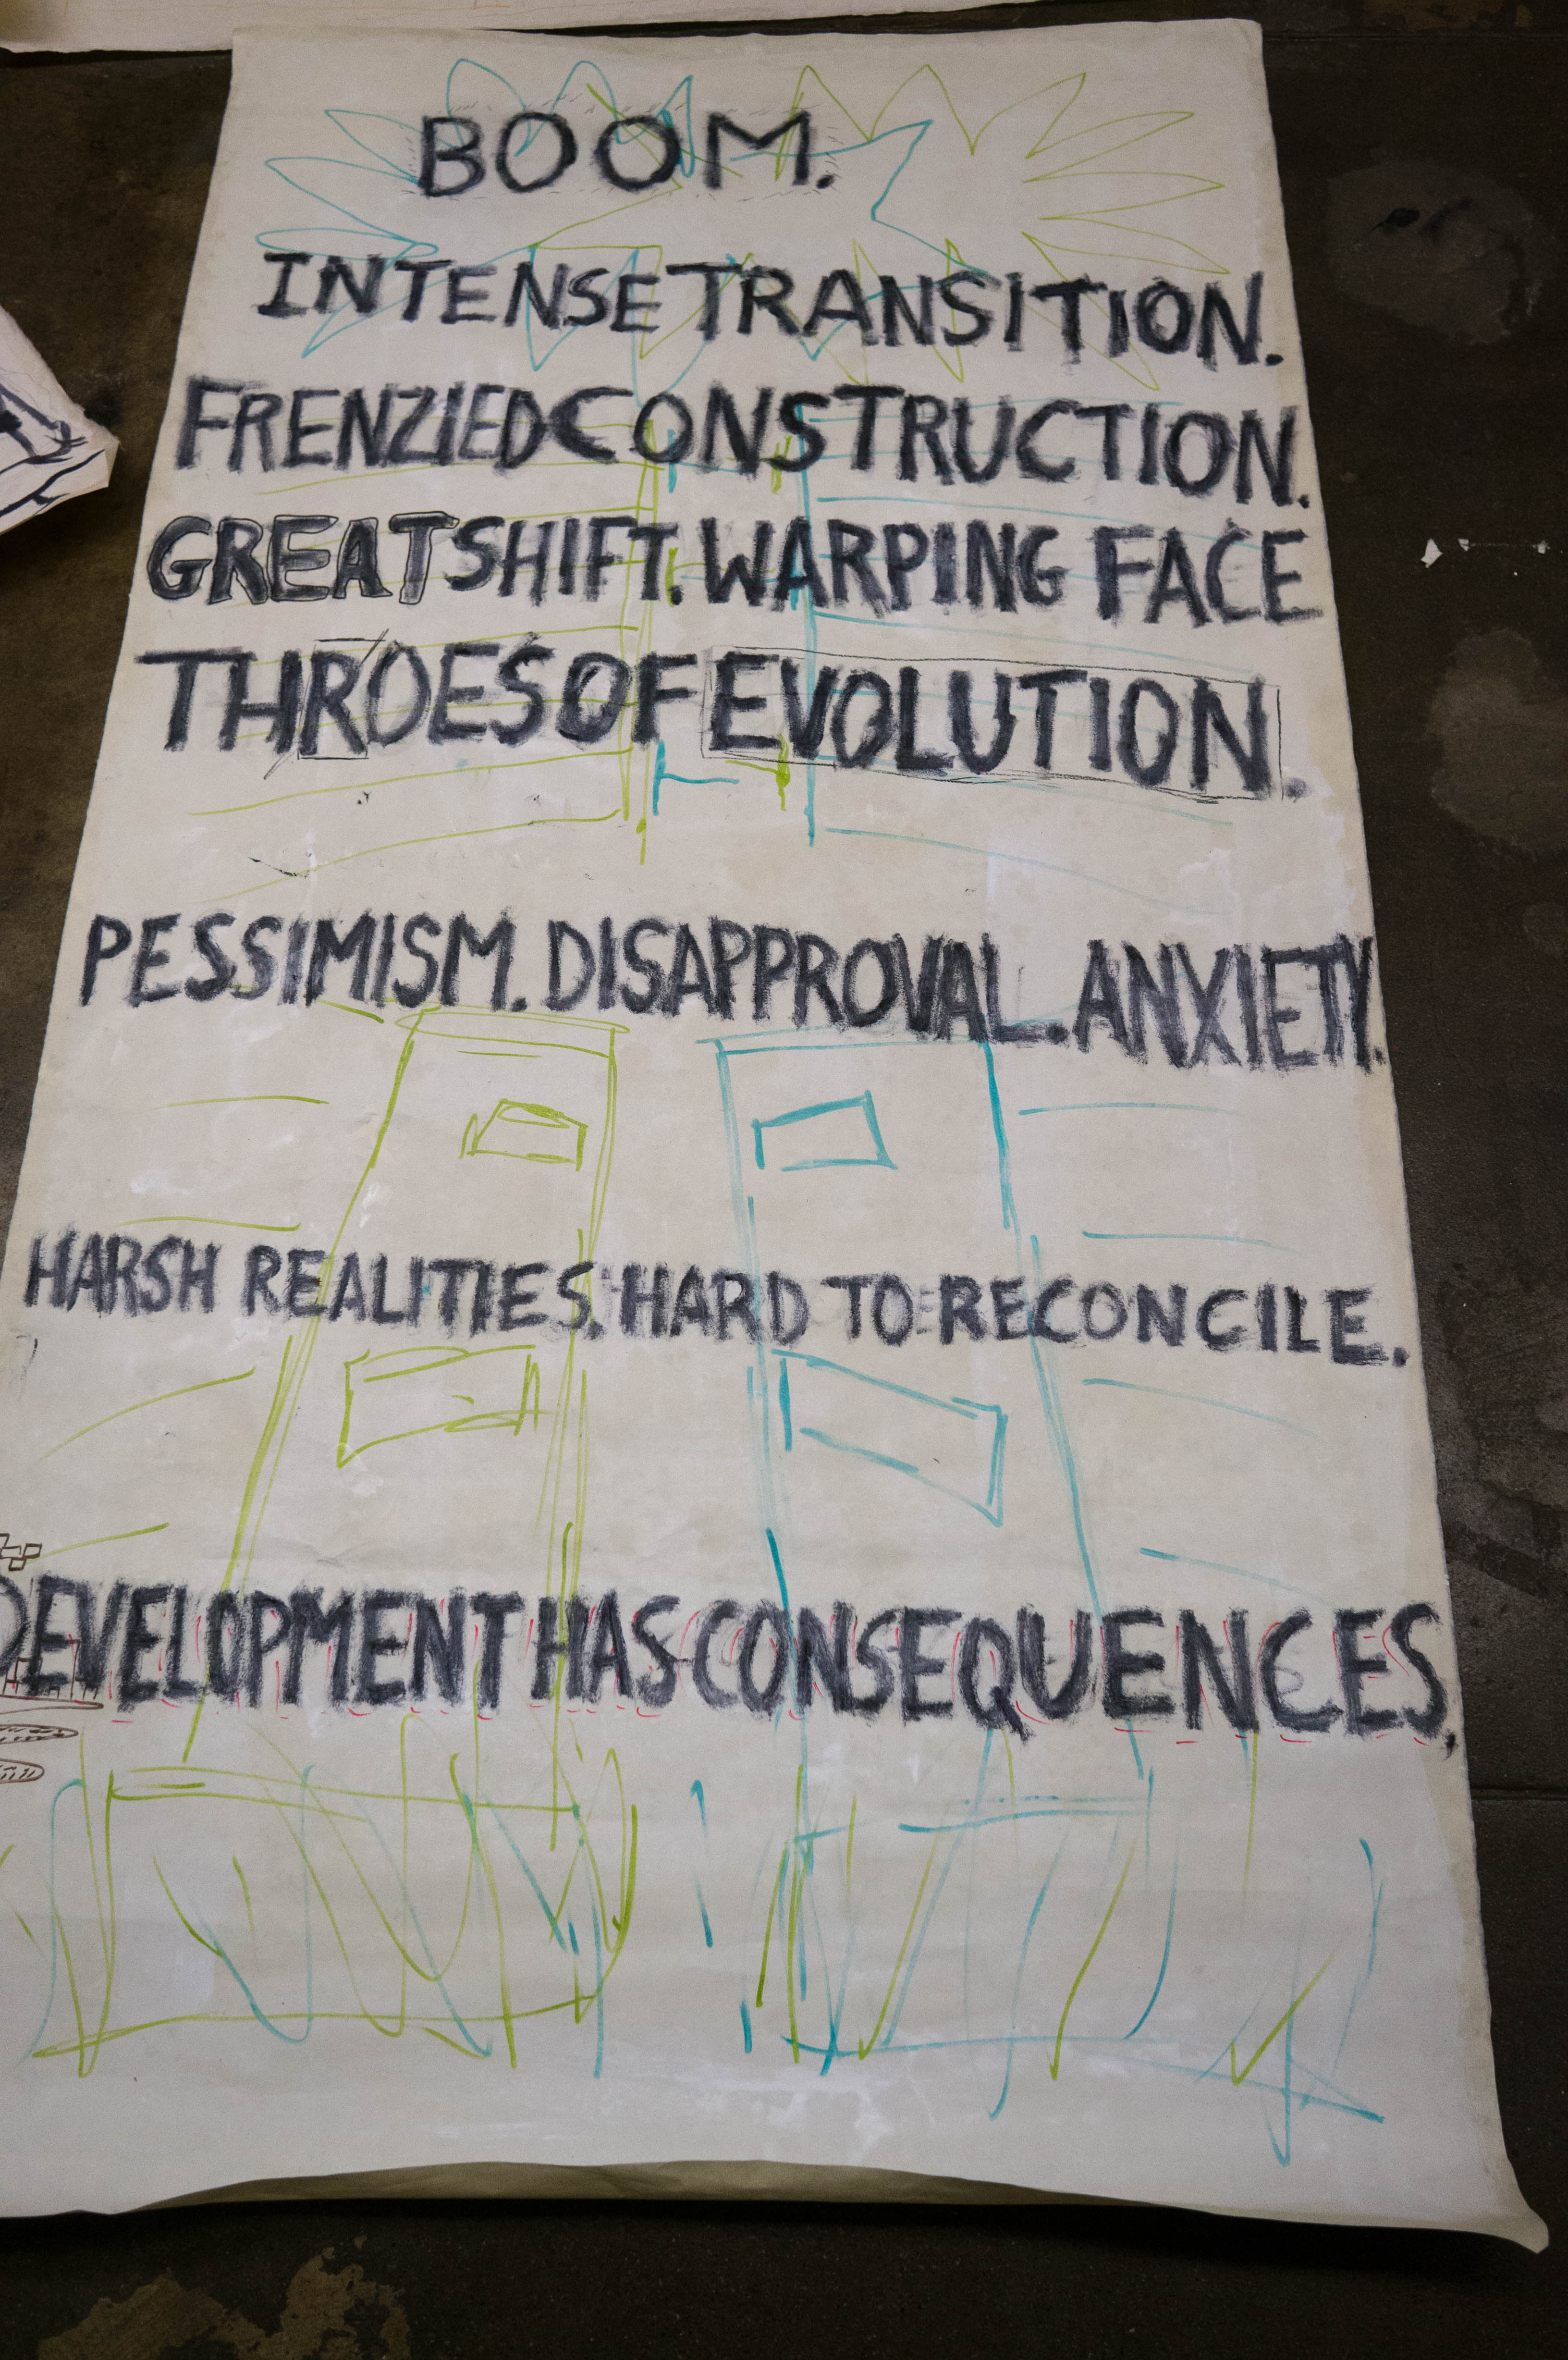 BOOM.
INTENSE TRANSITION.
FRENZIED CONSTRUCTION.
GREAT SHIFT. WARPING FACE
THROES OF EVOLUTION.
PESSIMISM. DISAPPROVAL. ANXIETY.
HARSH REALITIES. HARD TO RECONCILE.
DEVELOPMENT HAS CONSEQUENCES.